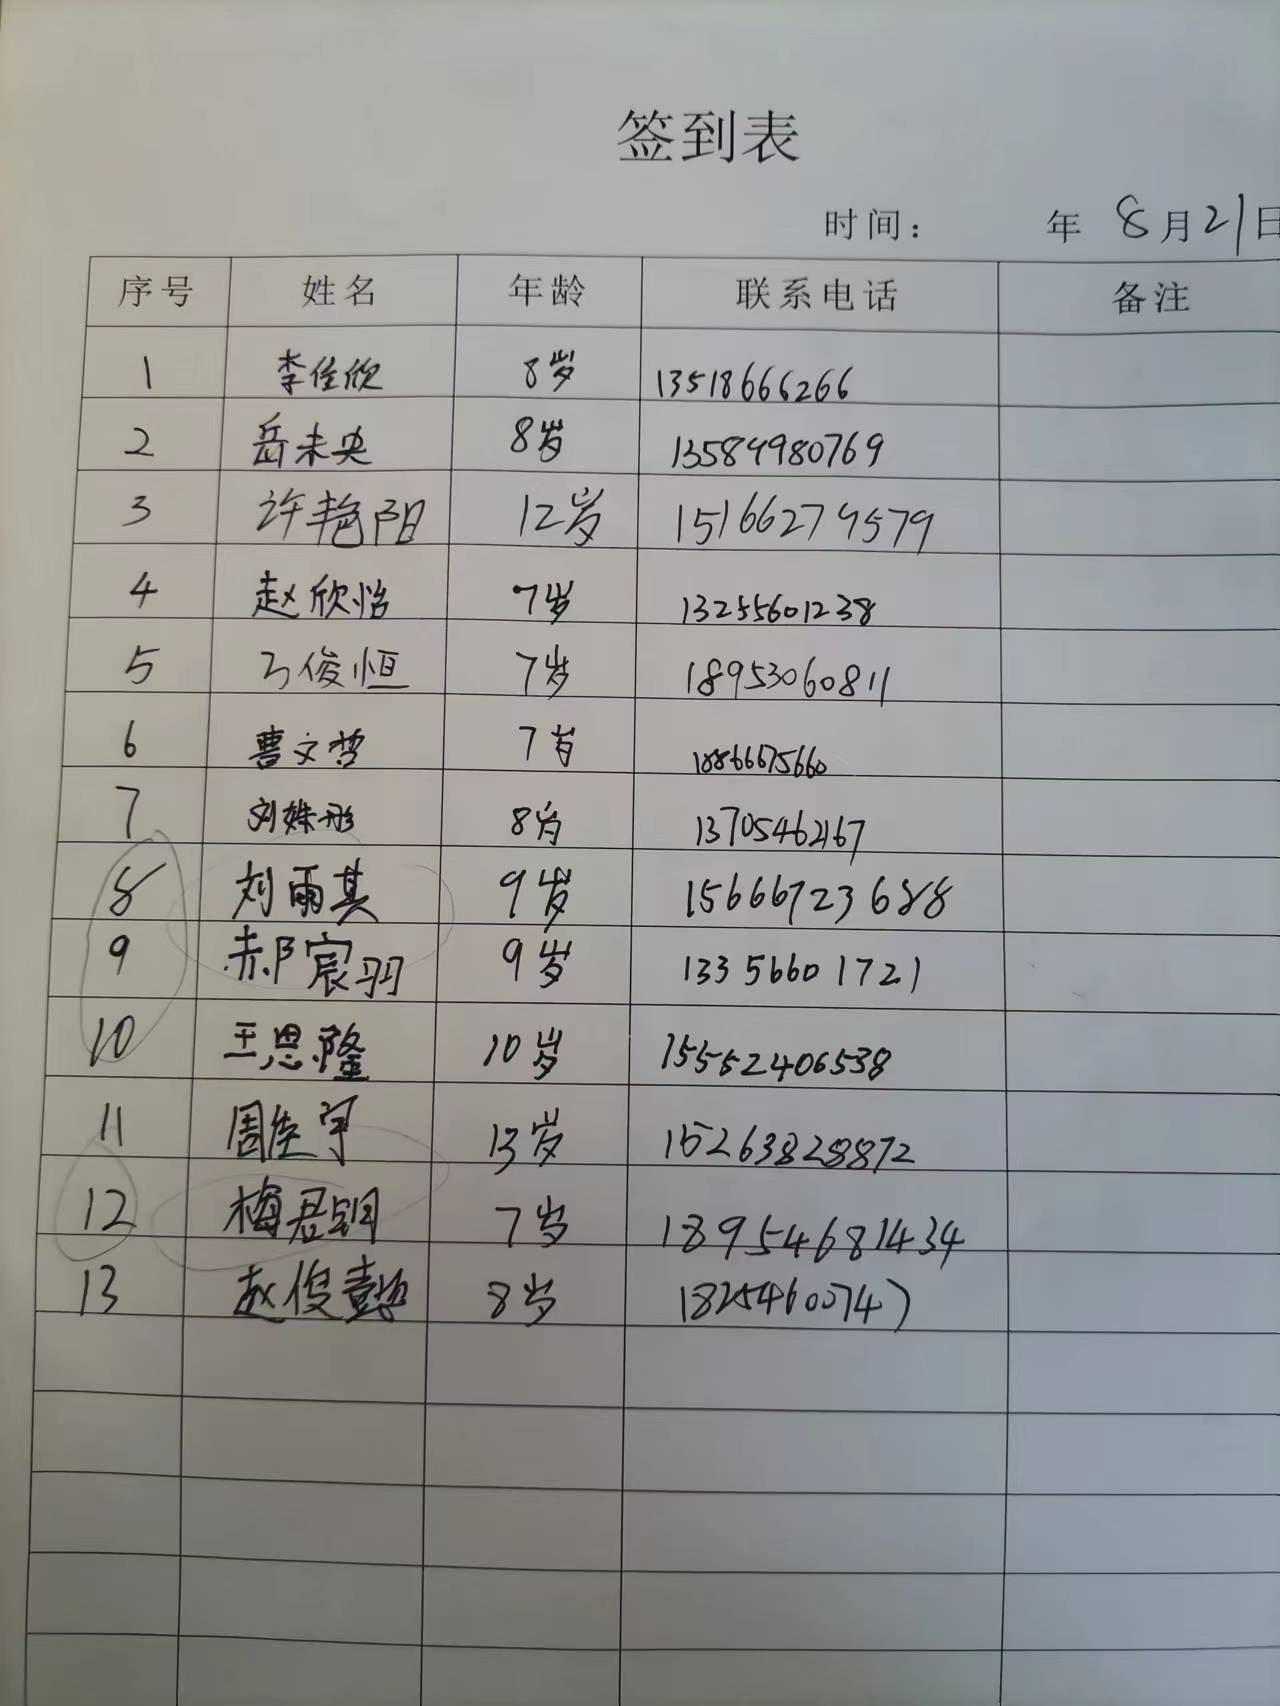 签到表
时间： 年 8月21日
序号 姓名 年龄 联系电话 备注
1 李佳欣 8岁 13518666266
2 岳未央 8岁 13584980769
3 许艳阳 12岁 15166279579
4 赵欣怡 7岁 13255601238
5 俊恒 7岁 18953060811
6 曹文哲 7岁 18866675660
7 刘姝彤 8岁 13705462167
8 刘雨其 9岁 15666723688
9 郝宸羽 9岁 13356601721
10 王恩隆 10岁 15552406538
11 周佳宇 13岁 15263828872
12 梅君玥 7岁 18954681434
13 赵俊懿 8岁 18254600747